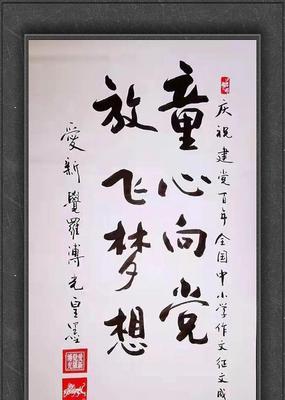 庆祝建党百年全国中小学作文征文成
童心向党
放飞梦想
爱新觉罗溥光皇墨